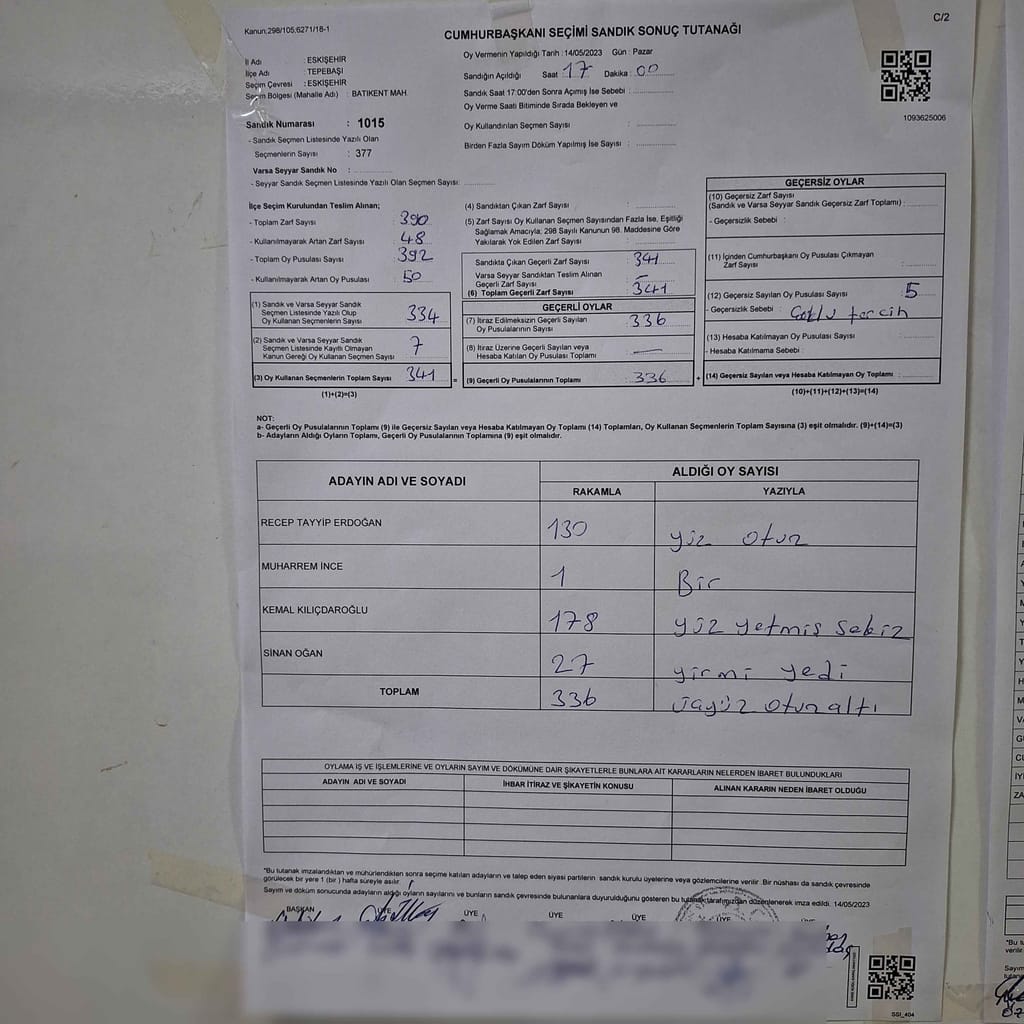 Kanun;298/105;6271/18-1
C/2
CUMHURBAŞKANI SEÇİMİ SANDIK SONUÇ TUTANAĞI
İl Adı : ESKİŞEHİR
İlçe Adı : TEPEBAŞI
Seçim Çevresi : ESKİŞEHİR
Seçim Bölgesi (Mahalle Adı) : BATIKENT MAH.
Oy Vermenin Yapıldığı Tarih : 14/05/2023 Gün : Pazar
Sandığın Açıldığı Saat 17 Dakika : 00
Sandık Saat 17:00'den Sonra Açımış İse Sebebi :
Oy Verme Saati Bitiminde Sırada Bekleyen ve
Oy Kullandırılan Seçmen Sayısı :
Birden Fazla Sayım Döküm Yapılmış İse Sayısı :
1093625006
Sandık Numarası : 1015
- Sandık Seçmen Listesinde Yazılı Olan
Seçmenlerin Sayısı : 377
Varsa Seyyar Sandık No :
- Seyyar Sandık Seçmen Listesinde Yazılı Olan Seçmen Sayısı:
İlçe Seçim Kurulundan Teslim Alınan;
- Toplam Zarf Sayısı 390
- Kullanılmayarak Artan Zarf Sayısı 48
- Toplam Oy Pusulası Sayısı 392
- Kullanılmayarak Artan Oy Pusulası 50
(1) Sandık ve Varsa Seyyar Sandık
Seçmen Listesinde Yazılı Olup
Oy Kullanan Seçmenlerin Sayısı 334
(2) Sandık ve Varsa Seyyar Sandık
Seçmen Listesinde Kayıtlı Olmayan
Kanun Gereği Oy Kullanan Seçmen Sayısı 7
(3) Oy Kullanan Seçmenlerin Toplam Sayısı 341 =
(1)+(2)=(3)
(4) Sandıktan Çıkan Zarf Sayısı :
(5) Zarf Sayısı Oy Kullanan Seçmen Sayısından Fazla İse, Eşitliği
Sağlamak Amacıyla; 298 Sayılı Kanunun 98. Maddesine Göre
Yakılarak Yok Edilen Zarf Sayısı :
Sandıkta Çıkan Geçerli Zarf Sayısı : 341
Varsa Seyyar Sandıktan Teslim Alınan
Geçerli Zarf Sayısı : –
(6) Toplam Geçerli Zarf Sayısı : 341
GEÇERLİ OYLAR
(7) İtiraz Edilmeksizin Geçerli Sayılan
Oy Pusulalarının Sayısı : 336
(8) İtiraz Üzerine Geçerli Sayılan veya
Hesaba Katılan Oy Pusulası Toplamı : —
(9) Geçerli Oy Pusulalarının Toplamı : 336 +
GEÇERSİZ OYLAR
(10) Geçersiz Zarf Sayısı
(Sandık ve Varsa Seyyar Sandık Geçersiz Zarf Toplamı) :
- Geçersizlik Sebebi :
(11) İçinden Cumhurbaşkanı Oy Pusulası Çıkmayan
Zarf Sayısı :
(12) Geçersiz Sayılan Oy Pusulası Sayısı : 5
- Geçersizlik Sebebi : Çoklu tercih
(13) Hesaba Katılmayan Oy Pusulası Sayısı :
- Hesaba Katılmama Sebebi :
(14) Geçersiz Sayılan veya Hesaba Katılmayan Oy Toplamı :
(10)+(11)+(12)+(13)=(14)
NOT:
a- Geçerli Oy Pusulalarının Toplamı (9) ile Geçersiz Sayılan veya Hesaba Katılmayan Oy Toplamı (14) Toplamları, Oy Kullanan Seçmenlerin Toplam Sayısına (3) eşit olmalıdır. (9)+(14)=(3)
b- Adayların Aldığı Oyların Toplamı, Geçerli Oy Pusulalarının Toplamına (9) eşit olmalıdır.
ADAYIN ADI VE SOYADI
ALDIĞI OY SAYISI
RAKAMLA YAZIYLA
RECEP TAYYİP ERDOĞAN 130 yüz otuz
MUHARREM İNCE 1 Bir
KEMAL KILIÇDAROĞLU 178 yüz yetmiş sekiz
SİNAN OĞAN 27 yirmi yedi
TOPLAM 336 üçyüz otuz altı
OYLAMA İŞ VE İŞLEMLERİNE VE OYLARIN SAYIM VE DÖKÜMÜNE DAİR ŞİKAYETLERLE BUNLARA AİT KARARLARIN NELERDEN İBARET BULUNDUKLARI
ADAYIN ADI VE SOYADI İHBAR İTİRAZ VE ŞİKAYETİN KONUSU ALINAN KARARIN NEDEN İBARET OLDUĞU
"Bu tutanak imzalandıktan ve mühürlendikten sonra seçime katılan adayların ve talep eden siyasi partilerin sandık kurulu üyelerine veya gözlemcilerine verilir. Bir nüshası da sandık çevresinde
görülecek bir yere 1 (bir) hafta süreyle asılır.
Sayım ve döküm sonucunda adayların aldığı oyların sayılarını ve bunların sandık çevresinde bulunanlara duyurulduğunu gösteren bu tutanak tarafımızdan düzenlenerek imza edildi. 14/05/2023
BAŞKAN ÜYE ÜYE ÜYE ÜYE ÜYE
SSI_404